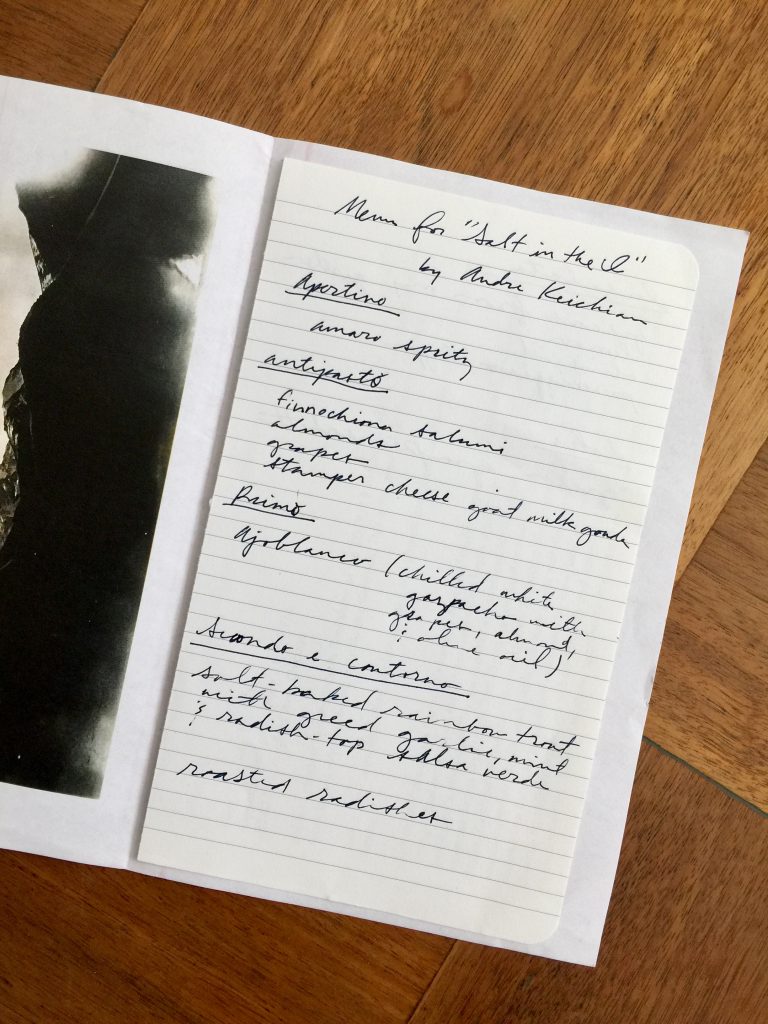 Menu for "Salt in the
by Andre Keichian
Apertino
amaro spritz
antipasto
finnochiona salumi
almonds
grapes
stamper cheese goat milk gouda
Primo
Ajoblanco (chilled white
gazpacho with
grapes, almond,
& olive oil)
Secondo e contorno
salt-baked rainbow trout
with greed garlic, mint
& radish-top salsa verde
roasted radishes